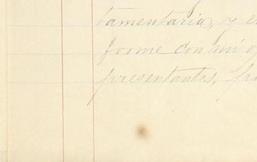 tamentaria, y e
forme con mi
presentantes,